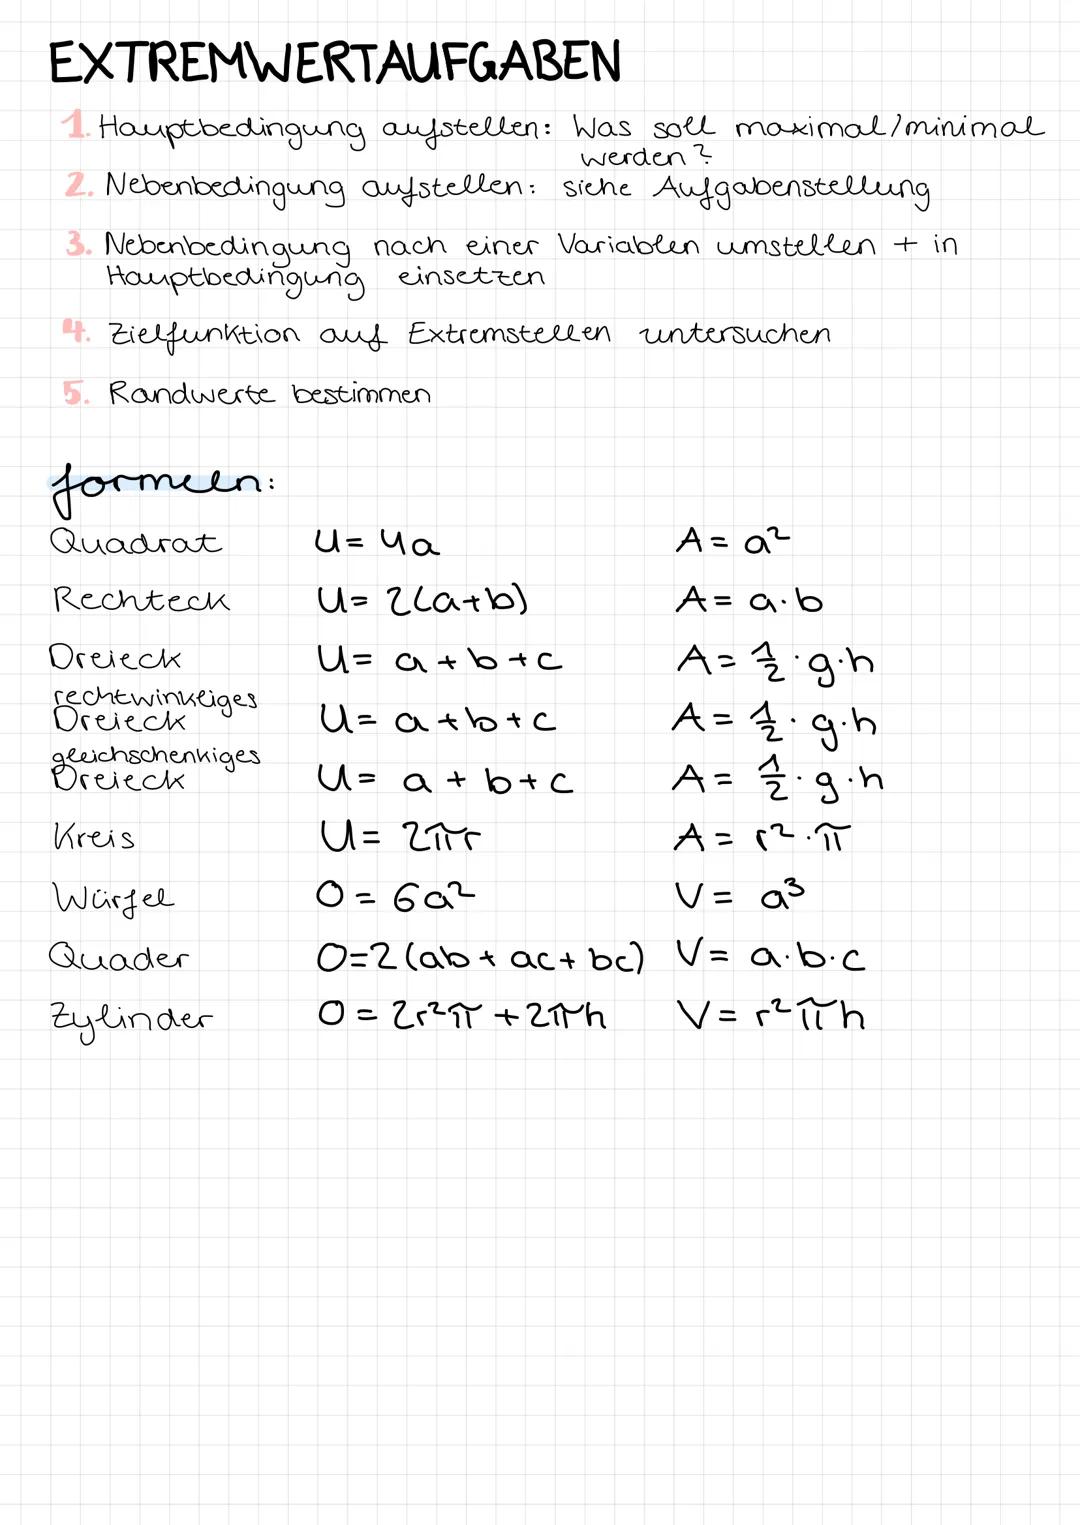 EXTREMWERTAUFGABEN
1. Hauptbedingung aufstellen: Was soll maximal/minimal
werden?
2. Nebenbedingung aufstellen: siehe Aufgabenstellung
3. Nebenbedingung nach einer Variablen umstellen + in
Hauptbedingung einsetzen
4. Zielfunktion auf Extremstellen untersuchen
5. Randwerte bestimmen
formeln:
Quadrat U = 4a A = a²
Rechteck U = 2(a+b) A = a·b
Dreieck U = a + b + c A = 1/2 · g · h
rechtwinkliges
Dreieck U = a + b + c A = 1/2 · g · h
gleichschenkiges
Dreieck U = a + b + c A = 1/2 · g · h
Kreis U = 2πr A = r² · π
Würfel O = 6a² V = a³
Quader O=2(ab + ac + bc) V = a·b·c
Zylinder O = 2r²π + 2πrh V = r²πh